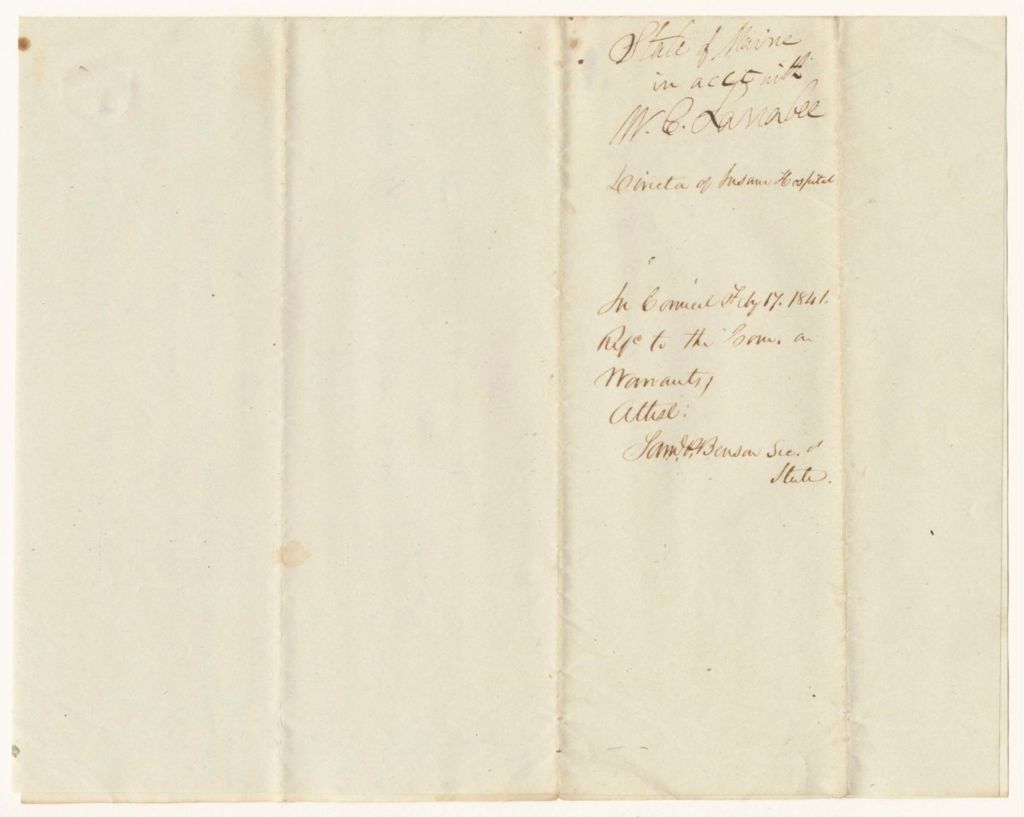 State of Maine
in acct with
W. C. Larrabee
Director of Insane Hospital
In Council Feby 17. 1841.
Refd to the Com. on
Warrants,
Attest:
Saml P. Benson Sec. of
State.